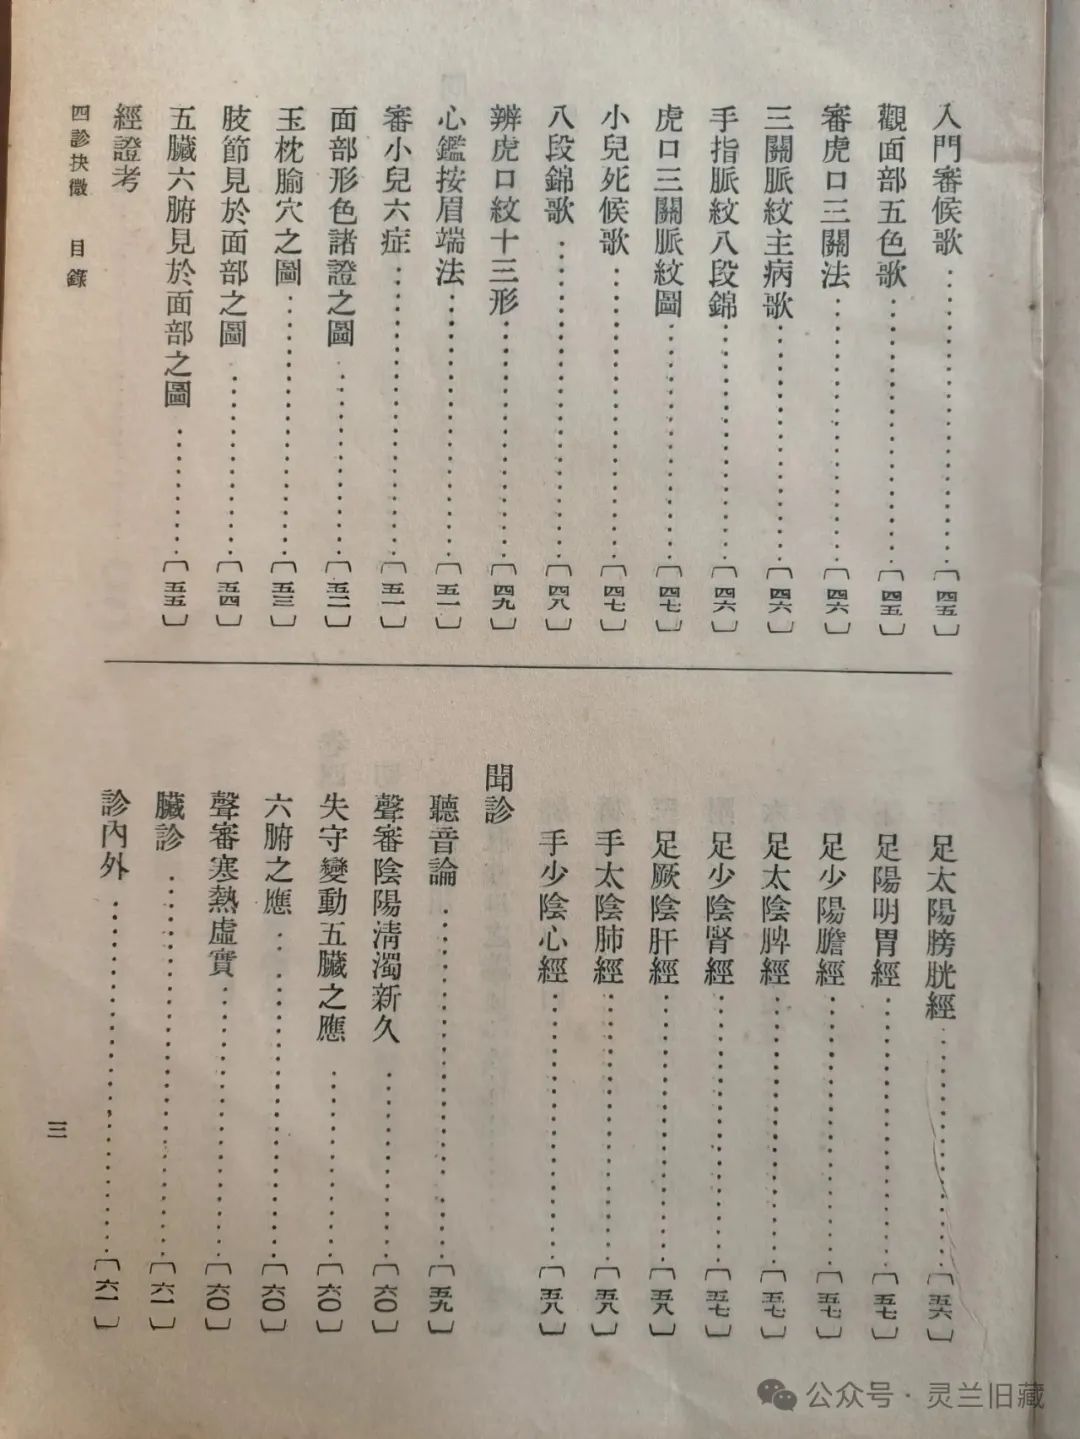 入門審候歌……〔四五〕
觀面部五色歌……〔四五〕
審虎口三關法……〔四六〕
三關脈紋主病歌……〔四六〕
手指脈紋八段錦……〔四六〕
虎口三關脈紋圖……〔四七〕
小兒死候歌……〔四七〕
八段錦歌……〔四八〕
辨虎口紋十三形……〔四九〕
心鑑按眉端法……〔五一〕
審小兒六症……〔五一〕
面部形色諸證之圖……〔五二〕
玉枕腧穴之圖……〔五三〕
肢節見於面部之圖……〔五四〕
五臟六腑見於面部之圖……〔五五〕
經證考
足太陽膀胱經……〔五六〕
足陽明胃經……〔五七〕
足少陽膽經……〔五七〕
足太陰脾經……〔五七〕
足少陰腎經……〔五七〕
足厥陰肝經……〔五八〕
手太陰肺經……〔五八〕
手少陰心經……〔五八〕
聞診
聽音論……〔五九〕
聲審陰陽清濁新久……〔六〇〕
失守變動五臟之應……〔六〇〕
六腑之應……〔六〇〕
聲審寒熱虛實……〔六〇〕
臟診……〔六一〕
診內外……〔六一〕
四診抉微 目錄
三
公众号·灵兰旧藏